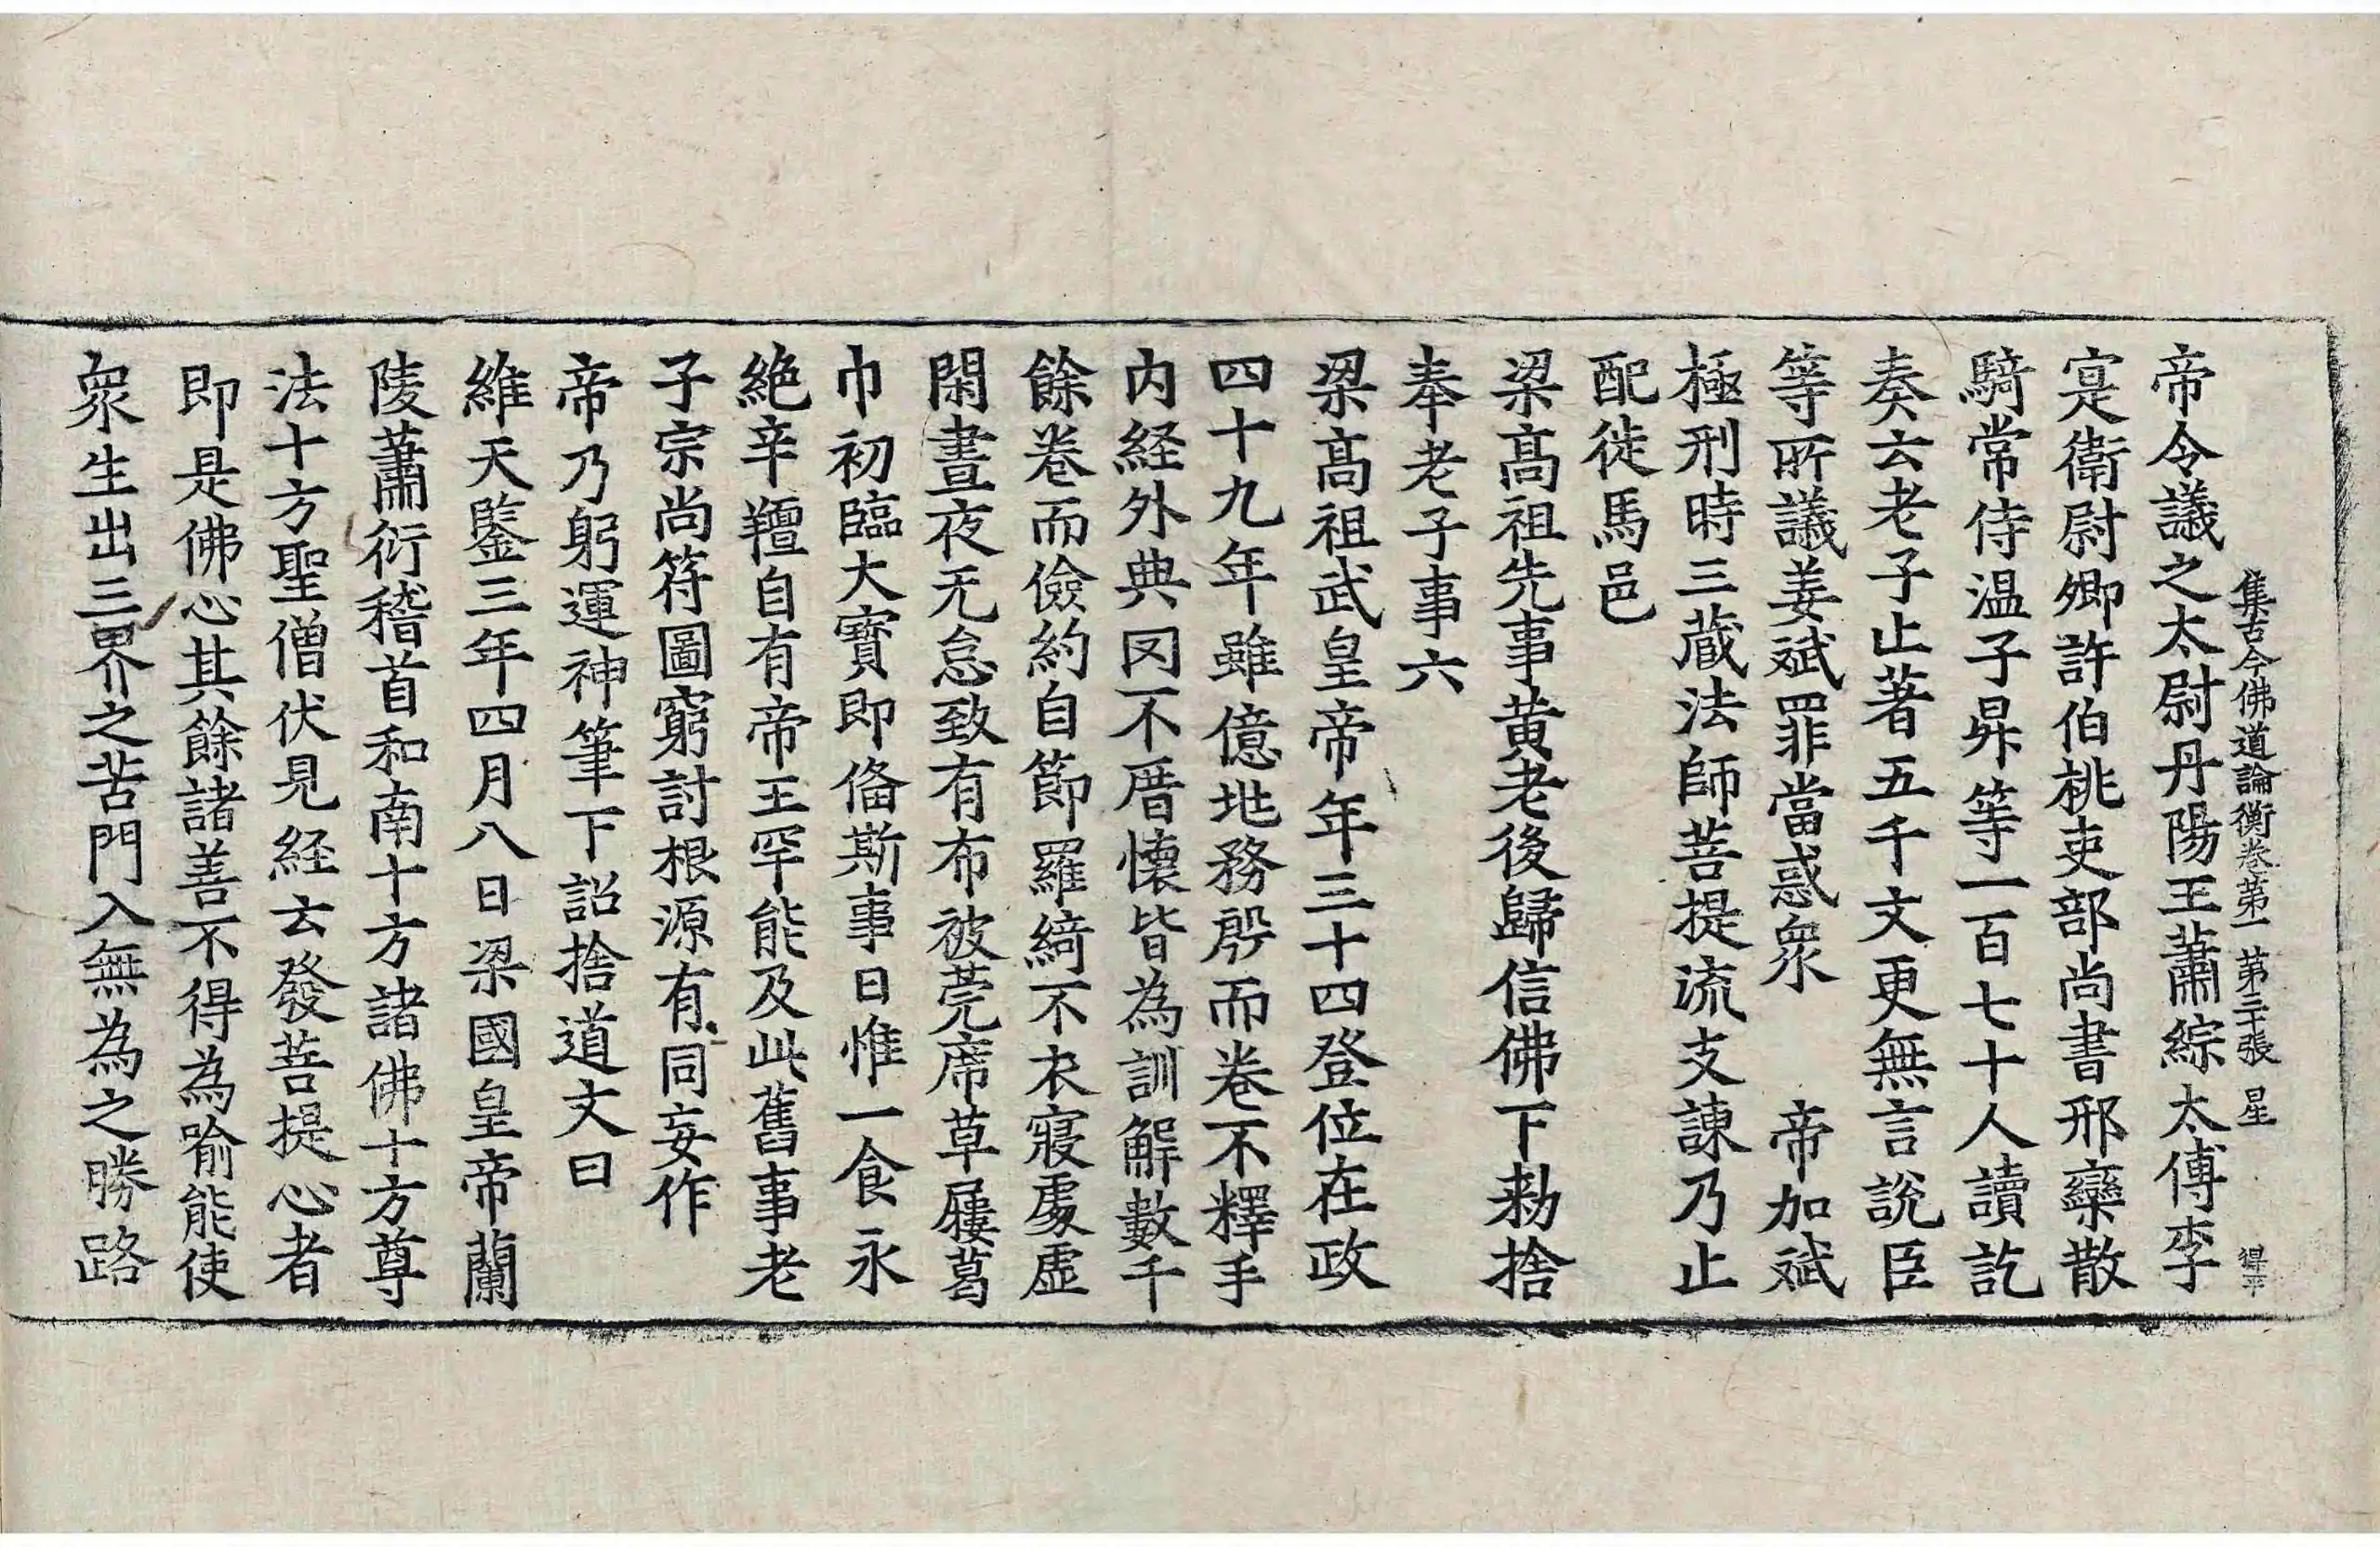 集古今佛道論衡卷第一 第三十張 星
帝令議之太尉丹陽王蕭綜太傅李
寔衛尉卿許伯桃吏部尚書邢欒散
騎常侍温子昇等一百七十人讀訖
奏云老子止著五千文更無言說臣
等所議姜斌罪當惑衆 帝加斌
極刑時三藏法師菩提流支諫乃止
配徙馬邑
梁髙祖先事黄老後歸信佛下勑捨
奉老子事六
梁髙祖武皇帝年三十四登位在政
四十九年雖億兆務殷而卷不釋手
内経外典罔不厝懷皆為訓解數千
餘卷而儉約自節羅綺不衣寢處虛
閑晝夜无怠致有布被莞席草屨葛
巾初臨大寳即偹斯事日惟一食永
絶辛羶自有帝王罕能及此舊事老
子宗尚符圖窮討根源有同妄作
帝乃躬運神筆下詔捨道文曰
維天鑒三年四月八日梁國皇帝蘭
陵蕭衍稽首和南十方諸佛十方尊
法十方聖僧伏見経云發菩提心者
即是佛心其餘諸善不得為喻能使
衆生出三界之苦門入無為之勝路